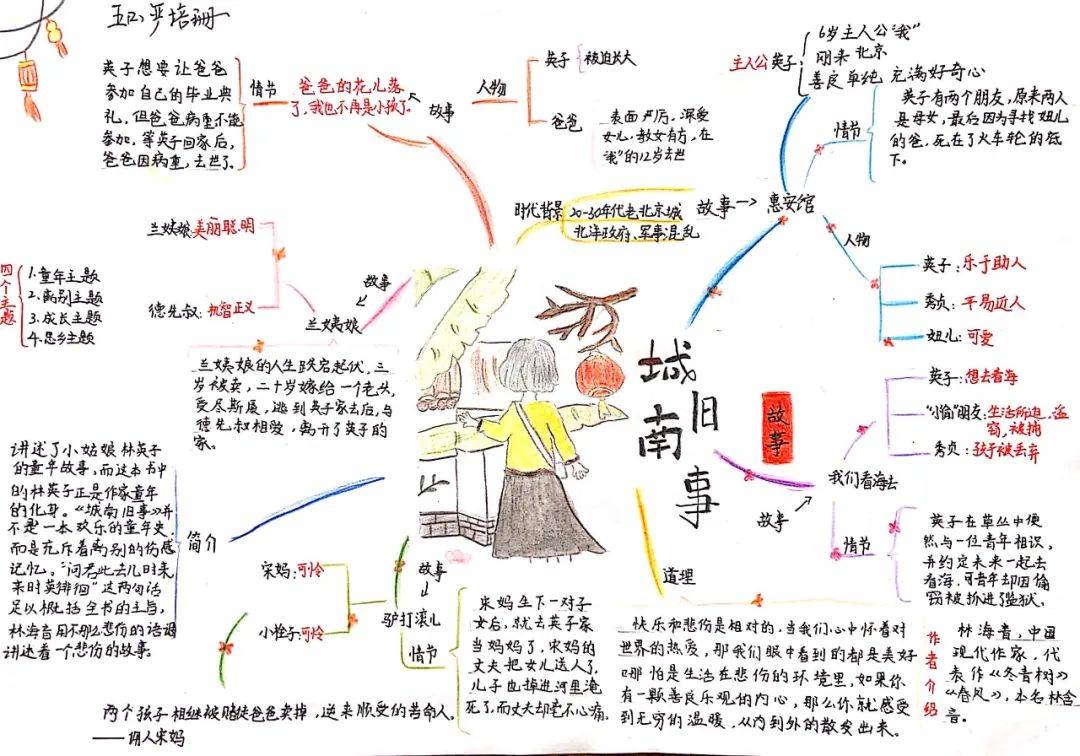 五(2)严培珊
英子想要让爸爸
参加自己的毕业典
礼，但爸爸病重不能
参加，等英子回家后，
爸爸因病重，去世了。
情节
爸爸的花儿落
了，我也不再是小孩了。
故事
人物
英子
被迫长大
爸爸
表面严厉，深爱
女儿，教女有方，在
“我”的12岁去世
主人公英子
6岁主人公“我”
刚来北京
善良单纯 充满好奇心
情节
英子有两个朋友，原来两人
是母女，最后因为寻找妞儿
的爸，死在了火车轮的底
下。
时代背景
20-30年代老北京城
北洋政府、军事混乱
故事→惠安馆
人物
英子：乐于助人
秀贞：平易近人
妞儿：可爱
兰姨娘美丽聪明
德先叔：机智正义
故事
兰姨娘
兰姨娘的人生跌宕起伏，三
岁被卖，二十岁嫁给一个老头，
受尽斯辱，逃到英子家去后，与
德先叔相爱，离开了英子的
家。
四个主题
1.童年主题
2.离别主题
3.成长主题
4.思乡主题
城南旧事
故事
英子：想去看海
“小偷”朋友：生活所迫、盗
窃，被捕
秀贞：孩子被丢弃
我们看海去
故事
情节
英子在草丛中偶
然与一位青年相识，
并约定未来一起去
看海，可青年却因偷
窃被抓进监狱。
讲述了小姑娘林英子
的童年故事，而这本书中
的林英子正是作家童年
的化身。《城南旧事》并
不是一本欢乐的童年史，
而是充斥着离别的伤感
记忆。“问君此去几时来
来时莫徘徊”这两句话
足以概括全书的主旨，
林海音用不那么悲伤的语调
讲述着一个悲伤的故事。
简介
宋妈：可怜
小栓子：可怜
故事
驴打滚儿
情节
宋妈生下一对子
女后，就去英子家
当妈妈了，宋妈的
丈夫把女儿送人了，
儿子也掉进河里淹
死了，而丈夫却毫不心痛。
两个孩子相继被赌徒爸爸卖掉，逆来顺受的苦命人。
——佣人宋妈
道理
快乐和悲伤是相对的，当我们心中怀着对
世界的热爱，那我们眼中看到的都是美好
哪怕是生活在悲伤的环境里，如果你
有一颗善良乐观的内心，那么你就感受
到无穷的温暖，从内到外的散发出来。
作者介绍
林海音，中国
现代作家，代
表作《冬青树》
《春风》，本名林含
音。